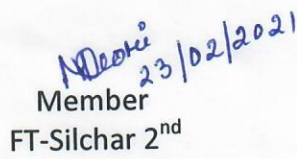 NDeori
23/02/2021
Member
FT-Silchar 2nd